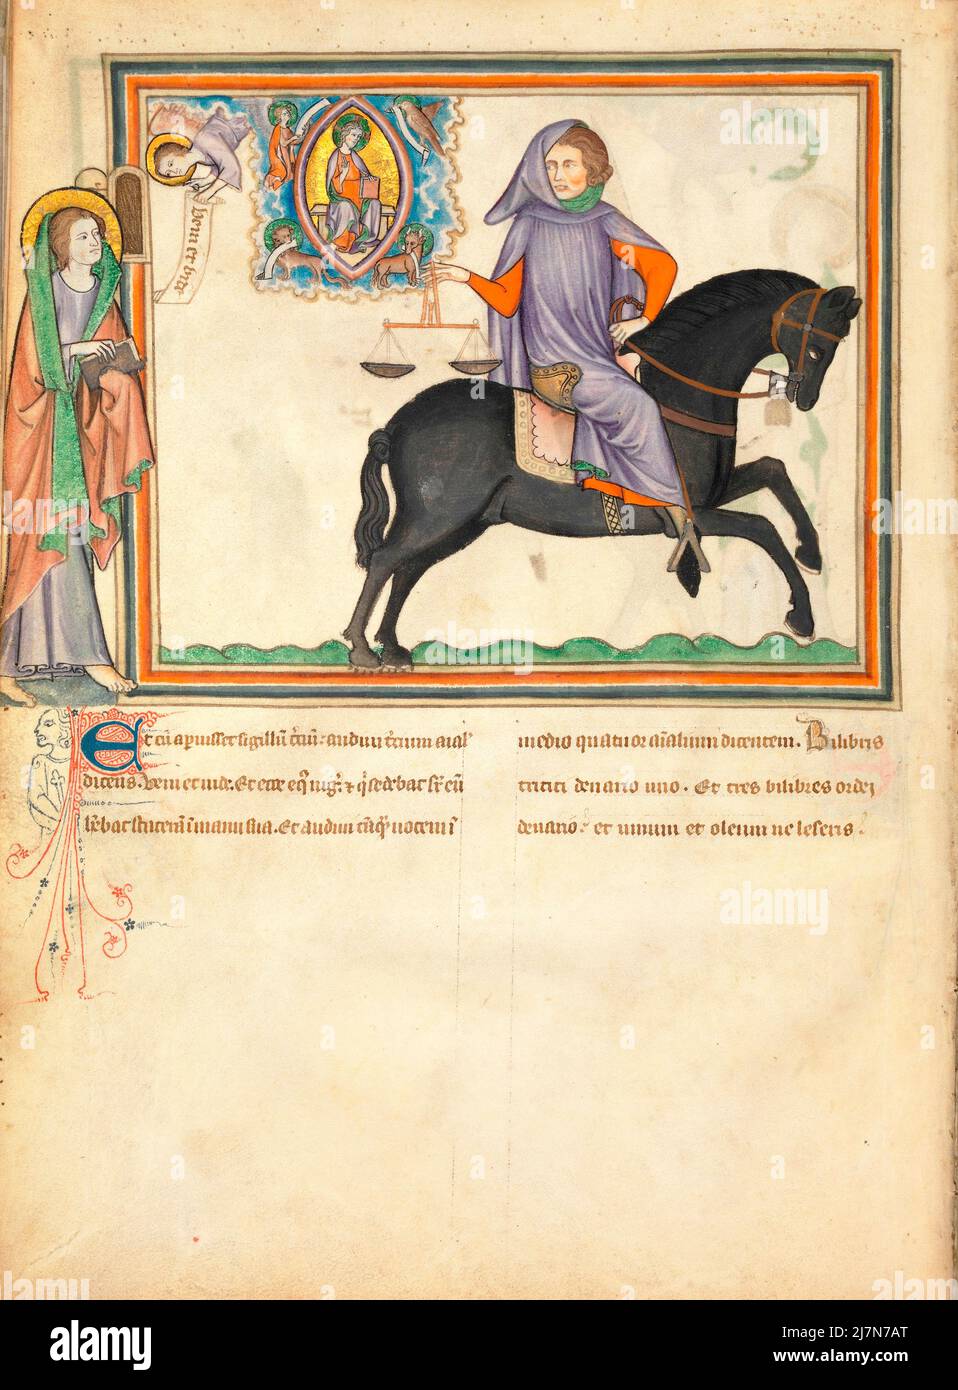 Veni et vide
Et cū aꝑuisset sigillū t̄ciū: audiui t̄cium aīal
dicens. Veni et uide. Et ecce eqͥ nigͬ. ⁊ qͥ sedebat sr̄ eū
hēbat staterā ī manu sua. Et audiui tāqͣ uocem ī
medio quatuor aīalium dicentem. Bilibris
tritici denario uno. Et tres bilibres ordei
denario: et uinum et oleum ne leseris.
alamy
Image ID: 2J7N7AT
www.alamy.com